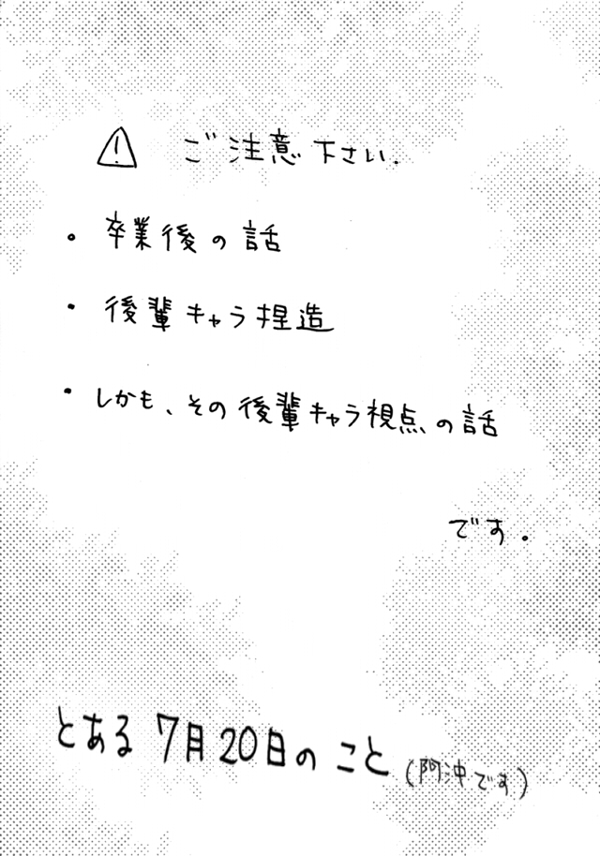 ご注意下さい.
・卒業後の話
・後輩キャラ捏造
・しかも、その後輩キャラ視点の話
です。
とある 7月20日のこと (阿沖です)